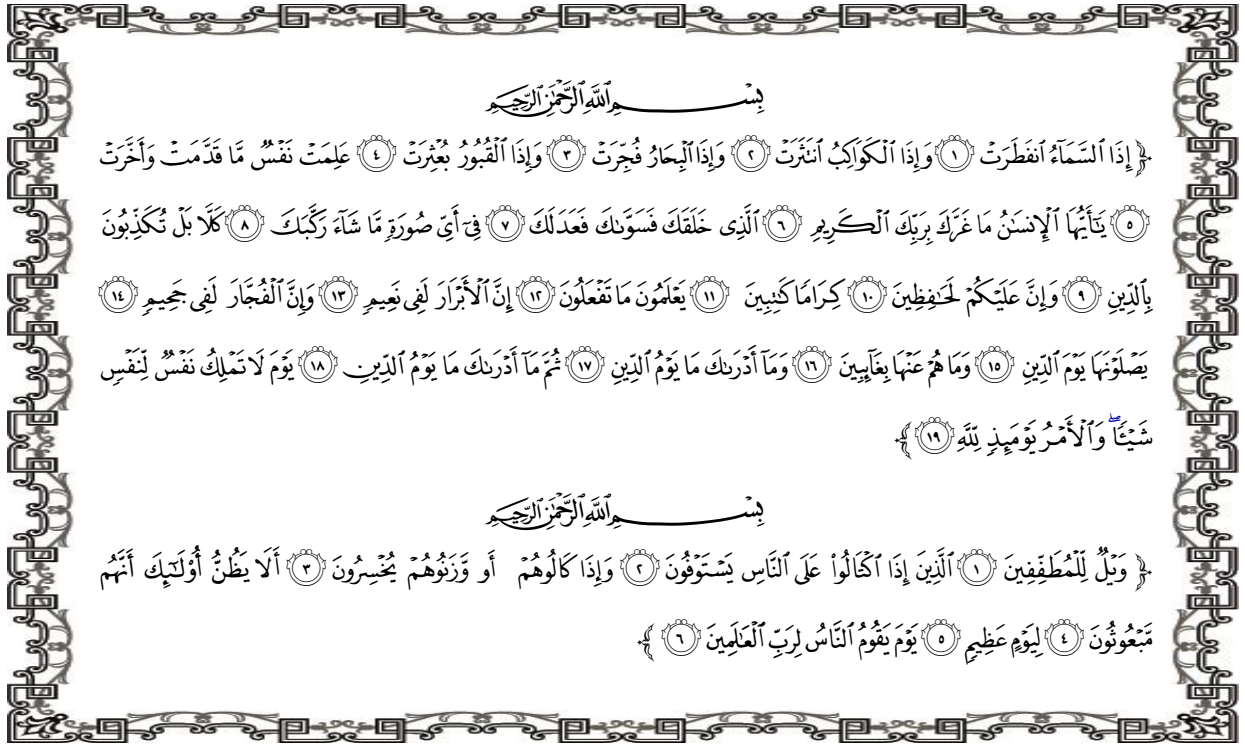 بِسْمِ ٱللَّهِ ٱلرَّحْمَٰنِ ٱلرَّحِيمِ
﴿ إِذَا ٱلسَّمَآءُ ٱنفَطَرَتْ ١ وَإِذَا ٱلْكَوَاكِبُ ٱنتَثَرَتْ ٢ وَإِذَا ٱلْبِحَارُ فُجِّرَتْ ٣ وَإِذَا ٱلْقُبُورُ بُعْثِرَتْ ٤ عَلِمَتْ نَفْسٌ مَّا قَدَّمَتْ وَأَخَّرَتْ
٥ يَٰٓأَيُّهَا ٱلْإِنسَٰنُ مَا غَرَّكَ بِرَبِّكَ ٱلْكَرِيمِ ٦ ٱلَّذِى خَلَقَكَ فَسَوَّىٰكَ فَعَدَلَكَ ٧ فِىٓ أَىِّ صُورَةٍ مَّا شَآءَ رَكَّبَكَ ٨ كَلَّا بَلْ تُكَذِّبُونَ
بِٱلدِّينِ ٩ وَإِنَّ عَلَيْكُمْ لَحَٰفِظِينَ ١٠ كِرَامًا كَٰتِبِينَ ١١ يَعْلَمُونَ مَا تَفْعَلُونَ ١٢ إِنَّ ٱلْأَبْرَارَ لَفِى نَعِيمٍ ١٣ وَإِنَّ ٱلْفُجَّارَ لَفِى جَحِيمٍ ١٤
يَصْلَوْنَهَا يَوْمَ ٱلدِّينِ ١٥ وَمَا هُمْ عَنْهَا بِغَآئِبِينَ ١٦ وَمَآ أَدْرَىٰكَ مَا يَوْمُ ٱلدِّينِ ١٧ ثُمَّ مَآ أَدْرَىٰكَ مَا يَوْمُ ٱلدِّينِ ١٨ يَوْمَ لَا تَمْلِكُ نَفْسٌ لِّنَفْسٍ
شَيْـًٔا ۖ وَٱلْأَمْرُ يَوْمَئِذٍ لِّلَّهِ ١٩ ﴾
بِسْمِ ٱللَّهِ ٱلرَّحْمَٰنِ ٱلرَّحِيمِ
﴿ وَيْلٌ لِّلْمُطَفِّفِينَ ١ ٱلَّذِينَ إِذَا ٱكْتَالُوا۟ عَلَى ٱلنَّاسِ يَسْتَوْفُونَ ٢ وَإِذَا كَالُوهُمْ أَو وَّزَنُوهُمْ يُخْسِرُونَ ٣ أَلَا يَظُنُّ أُو۟لَٰٓئِكَ أَنَّهُم
مَّبْعُوثُونَ ٤ لِيَوْمٍ عَظِيمٍ ٥ يَوْمَ يَقُومُ ٱلنَّاسُ لِرَبِّ ٱلْعَٰلَمِينَ ٦ ﴾